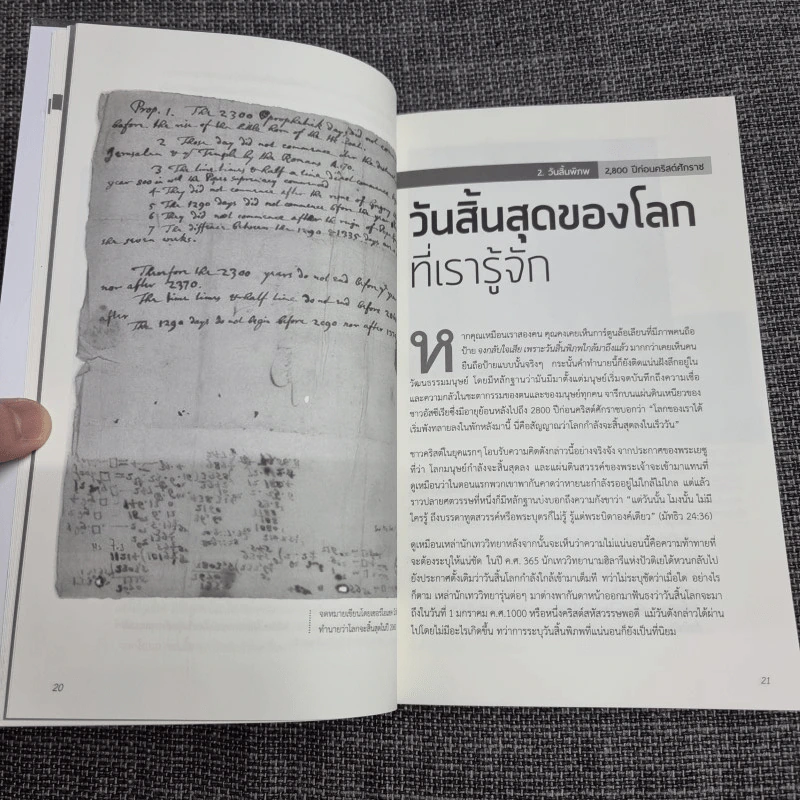 Prop. 1. The 2300 prophetick days did not
before the rise of the little horn of the He Goat.
2 Those day did not commence after the
Jerusalem & ye Temple by the Romans A.
3 The time times & half a time did not commence
year 800 in wch the Popes supremacy commenced
4 They did not commence after the reigne of Gregory
5 The 1290 days did not commence before the year
6 They did not commence after the reign of Pope
7 The difference between the 1290 & 1335 days are
the seven weeks.
Therefore the 2300 years do not end before ye year
nor after 2370.
The time times & half time do not end before
after
The 1290 days do not begin before 2090 nor after
จดหมายเขียนโดยเซอร์ไอแซค
ทำนายว่าโลกจะสิ้นสุดในปี
20
2. วันสิ้นพิภพ 2,800 ปีก่อนคริสต์ศักราช
วันสิ้นสุดของโลก
ที่เรารู้จัก
หากคุณเหมือนเราสองคน คุณคงเคยเห็นการ์ตูนล้อเลียนที่มีภาพคนถือ
ป้าย จงกลับใจเสีย เพราะวันสิ้นพิภพใกล้มาถึงแล้ว มากกว่าเคยเห็นคน
ยืนถือป้ายแบบนั้นจริงๆ กระนั้นคำทำนายนี้ก็ยังติดแน่นฝังลึกอยู่ใน
วัฒนธรรมมนุษย์ โดยมีหลักฐานว่ามันมีมาตั้งแต่มนุษย์เริ่มจดบันทึกถึงความเชื่อ
และความกลัวในชะตากรรมของตนและของมนุษย์ทุกคน จารึกบนแผ่นดินเหนียวของ
ชาวอัสซีเรียซึ่งมีอายุย้อนหลังไปถึง 2800 ปีก่อนคริสต์ศักราชบอกว่า “โลกของเราได้
เริ่มพังทลายลงในพักหลังมานี้ นี่คือสัญญาณว่าโลกกำลังจะสิ้นสุดลงในเร็ววัน”
ชาวคริสต์ในยุคแรกๆ โอบรับความคิดดังกล่าวนี้อย่างจริงจัง จากประกาศของพระเยซู
ที่ว่า โลกมนุษย์กำลังจะสิ้นสุดลง และแผ่นดินสวรรค์ของพระเจ้าจะเข้ามาแทนที่
ดูเหมือนว่าในตอนแรกพวกเขาพากันคาดว่าหายนะกำลังรออยู่ไม่ใกล้ไม่ไกล แต่แล้ว
ราวปลายศตวรรษที่หนึ่งก็มีหลักฐานบ่งบอกถึงความกังขาว่า “แต่วันนั้น โมงนั้น ไม่มี
ใครรู้ ถึงบรรดาทูตสวรรค์หรือพระบุตรก็ไม่รู้ รู้แต่พระบิดาองค์เดียว” (มัทธิว 24:36)
ดูเหมือนเหล่านักเทววิทยาหลังจากนั้นจะเห็นว่าความไม่แน่นอนนี้คือความท้าทายที่
จะต้องระบุให้แน่ชัด ในปี ค.ศ. 365 นักเทววิทยานามฮิลารีแห่งปัวติเยได้หวนกลับไป
ยังประกาศดั้งเดิมว่าวันสิ้นโลกกำลังใกล้เข้ามาเต็มที ทว่าไม่ระบุชัดว่าเมื่อใด อย่างไร
ก็ตาม เหล่านักเทววิทยารุ่นต่อๆ มาต่างพากันดาหน้าออกมาฟันธงว่าวันสิ้นโลกจะมา
ถึงในวันที่ 1 มกราคม ค.ศ.1000 หรือหนึ่งคริสต์สหัสวรรษพอดี แม้วันดังกล่าวได้ผ่าน
ไปโดยไม่มีอะไรเกิดขึ้น ทว่าการระบุวันสิ้นพิภพที่แน่นอนก็ยังเป็นที่นิยม
21